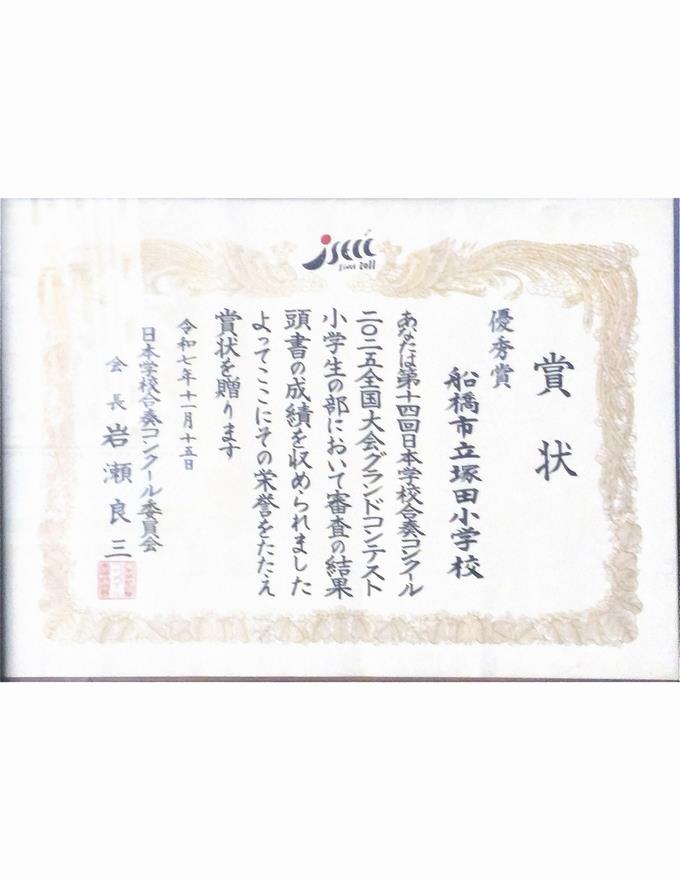 jsecc
Since 2011
賞状
優秀賞
船橋市立塚田小学校
あなたは第十四回日本学校合奏コンクール
二〇二五全国大会グランドコンテスト
小学生の部において審査の結果
頭書の成績を収められました
よってここにその栄誉をたたえ
賞状を贈ります
令和七年十一月十五日
日本学校合奏コンクール委員会
会長 岩瀬良三